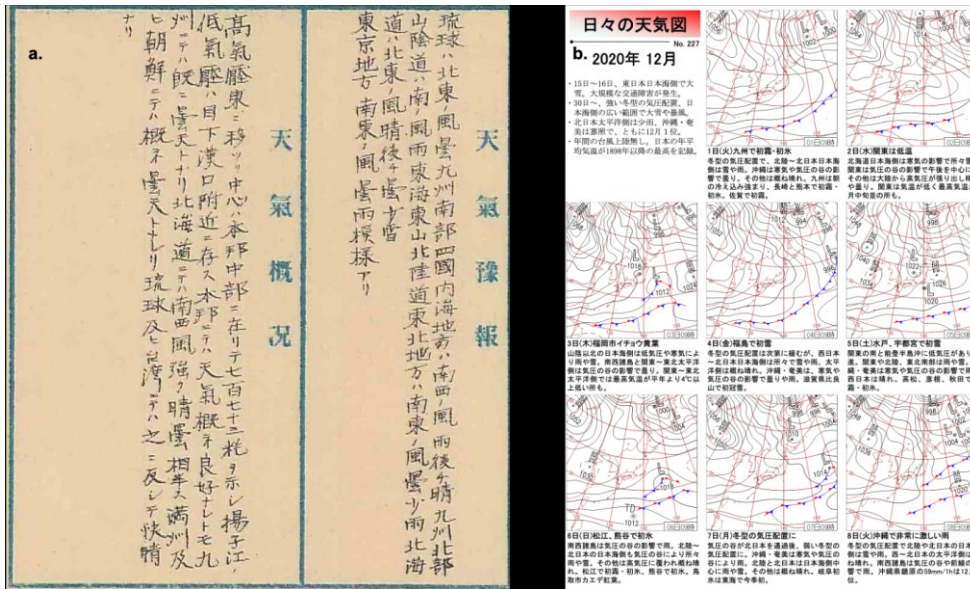 a.
天氣豫報
琉球ハ北東ノ風曇九州南部四國内海地方ハ南西ノ風雨後チ晴九州北部
山陰道ハ南ノ風雨東海東山北陸道東北地方ハ南東ノ風曇少雨北海
道ハ北東ノ風晴後チ曇少雪
東京地方 南東ノ風曇雨模様アリ
天氣概況
高氣壓東ニ移ツリ中心ハ本邦中部ニ在リテ七百七十三粍ヲ示シ揚子江
低氣壓ハ目下漢口附近ニ存ス本邦ニテハ天氣概ネ良好ナレトモ九
州ニテハ既ニ曇天トナリ北海道ニテハ南西風強ク晴曇相半ス満州及
ヒ朝鮮ニテハ概ネ曇天ナリ琉球及ヒ台湾ニテハ之ニ反シテ快晴
ナリ
日々の天気図
No. 227
b. 2020年 12月
・15日~16日、東日本日本海側で大
雪。大規模な交通障害が発生。
・30日~、強い冬型の気圧配置、日
本海側の広い範囲で大雪や暴風。
・北日本太平洋側は少雨、沖縄・奄
美は寡照で、ともに12月1位。
・年間の台風上陸無し。日本の年平
均気温が1898年以降の最高を記録。
1日(火)九州で初霜・初氷
冬型の気圧配置で、北陸~北日本日本海
側は雪や雨。沖縄は寒気や気圧の谷の影
響で曇り。その他は概ね晴れ。九州は朝
の冷え込み強まり、長崎と熊本で初霜・
初氷、佐賀で初霜。
2日(水)関東は低温
北海道日本海側は寒気の影響で所々雪
関東は気圧の谷の影響で午後を中心に
その他は大陸から高気圧が張り出し晴
や曇り。関東は気温が低く最高気温
月中旬並の所も。
3日(木)福岡市イチョウ黄葉
山陰以北の日本海側は低気圧や寒気によ
り雨や雪。南西諸島と関東~東北太平洋
側は気圧の谷の影響で曇り。関東~東北
太平洋側では最高気温が平年より4℃以
上低い所も。
4日(金)福島で初雪
冬型の気圧配置は次第に緩むが、西日本
~北日本日本海側は所々で雪や雨、太平
洋側は概ね晴れ。沖縄・奄美は、寒気や
気圧の谷の影響で曇りや雨。滋賀県比良
山で初冠雪。
5日(土)水戸、宇都宮で初雪
関東の南と能登半島沖に低気圧があり
進。関東や北陸、東北南部は雨や雪。
縄・奄美は寒気や気圧の谷の影響で雨
西日本は晴れ。高松、彦根、秋田で
霜・初氷。
6日(日)松江、熊谷で初氷
南西諸島は気圧の谷の影響で雨。北陸~
北日本の日本海側も気圧の谷により所々
雨や雪。その他は高気圧に覆われ概ね晴
れ。松江で初霜・初氷、熊谷で初氷。鳥
取市カエデ紅葉。
7日(月)冬型の気圧配置に
気圧の谷が北日本を通過後、弱い冬型の
気圧配置に。沖縄・奄美は寒気や気圧の
谷により雨。北陸と北日本は日本海側中
心に雨や雪。その他は概ね晴れ。岐阜初
氷は東海で今季初。
8日(火)沖縄で非常に激しい雨
冬型の気圧配置で北陸や北日本の日本
側は雪や雨。西~北日本の太平洋側は
ね晴れ。南西諸島は気圧の谷や前線の
響で雨。沖縄県鏡原の59mm/1hは12月
位。